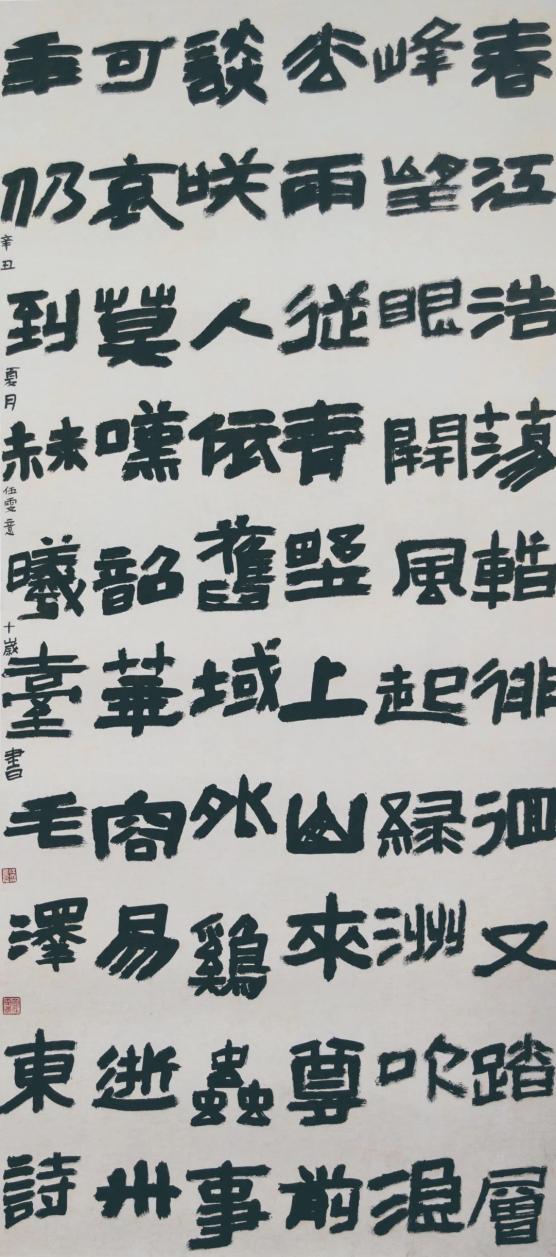 春江浩蕩暫徘徊又踏層
峰望眼開風起緑洲吹浪
去雨從青野上山來尊前
談咲人依舊域外鷄蟲事
可哀莫嘆韶華容易逝卅
年仍到赫曦臺毛澤東詩
辛丑夏月伍雯意十歲書